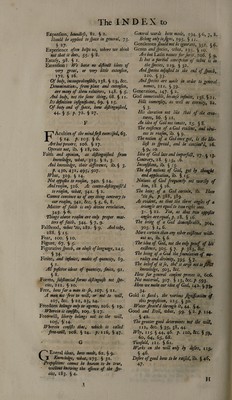 The INDEX to
Expansion, boundless, 81. §. 2.
Should be applied to space in general, 73.
§. 27.
Experience often helps us, where we think
not that it does, 55. §. 8.
Extasy, 98. §. 1.
Extension: We have no distinct ideas of
very great, or very little extension,
172. §. 16.
Of body, incomprehensible, 138. §. 23, &c.
Denominations, from place and extension,
are many of them relatives, 148. §. 5.
And body, not the same thing, 68. §. 11.
Its definition insignificant, 69. §. 15.
Of body and of space, how distinguished,
F
Faculties of the mind first exercised, 65.
§. 14.
Are but powers, 106. §. 17.
Operate not, ib. §. 18, 20.
Faith and opinion, as distinguished from
knowledge, what, 313. §. 2, 3.
And knowledge, their difference, ib. §. 3.
What, 319. §. 14.
Not opposite to reason, 329. §. 24.
And reason,
to reason, what, 342. §. 2.
Cannot convince us of any thing contrary to
our reason, 343, &c. §. 5, 6, 8.
Matter of faith is only divine revelation,
345. §. 9.
Things above reason are only proper mat-
ters of faith, 344. §. 7, 9.
Falshood, what 'tis, 282. §. 9. And only,
168. §. 22.
Fear, 100. §. 10.
Figure, 67. §. 5.
Figurative speech, an abuse of language, 245.
§. 34.
Finite, and infinite; modes of quantity, 89.
§. 1.
All positive ideas of quantity, finite, 91.
§. 8.
Forms, substantial forms distinguish not spe-
cies, 211. §. 10.
Free, how far a man is so, 107. §. 21.
A man not free to will, or not to will,
107, &c. §. 22, 23, 24.
Freedom belongs only to agents, 106. §. 19.
Wherein it consists, 109. §. 27.
Freewill, liberty belongs not to the will,
105. §. 14.
Wherein consists that, which is called
G
General ideas, how made, 61. §. 9.
Knowledge, what, 275. §. 31.
Propositions cannot be known to be true,
without knowing the essence of the spe-
cies, 283. §. 4.
General words how made, 194. §. 6, 7, 8.
Belong only to signs, 195. §. 11.
Gentlemen should not be ignorant, 337. §. 6.
Genus and species, what, 195. §. 10.
Are but Latin names for sorts, 199. §. 9.
Is but a partial conception of what is in
the species, 219. §. 32.
And species adjusted to the end of speech,
ib. §. 33.
And species are made in order to general
names, 221. §. 39.
Generation, 147. §. 2.
GOD immoveable, because infinite, 136. §. 21.
Fills immensity, as well as eternity, 82.
§. 3.
His duration not like that of the crea-
tures, 86. §. 12.
An idea of God not innate, 23. §. 8.
The existence of a God evident, and obvi-
ous to reason, ib. §. 9.
The notion of a God once got, is the like-
liest to spread, and be continued, ib.
§. 9, 10.
Idea of God late and imperfect, 25. §. 13.
Contrary, ib. §. 15.
Inconsistent, ib. §. 15.
The best notions of God, got by thought
and application, ib. §. 15.
Notions of God frequently not worthy of
him, ib. §. 16.
The being of a God certain, ib. How
As evident, as that the three angles of a
triangle are equal to two right ones.
27. §. 22. Yea, as that two opposite
angles are equal, ib. §. 16.
The being of a God demonstrable, 305. §. 1, 6.
More certain than any other existence without
us, ib. §. 6.
The idea of God, not the only proof of his
existence, 305. §. 7.
The being of a God the foundation of mo-
rality and divinity, ib. §. 7.
How we make our idea of God, 141.
§. 33, 34.
Gold is fixed; the various significations of
this proposition,
Good and Evil, what, 99. §. 2.
The greater good determines not the will,
Why,
Twofold, 111. §. 61.
Works on the will only by desire,
§. 46.
Desire of good how to be raised, ib. §. 46,
47.
H